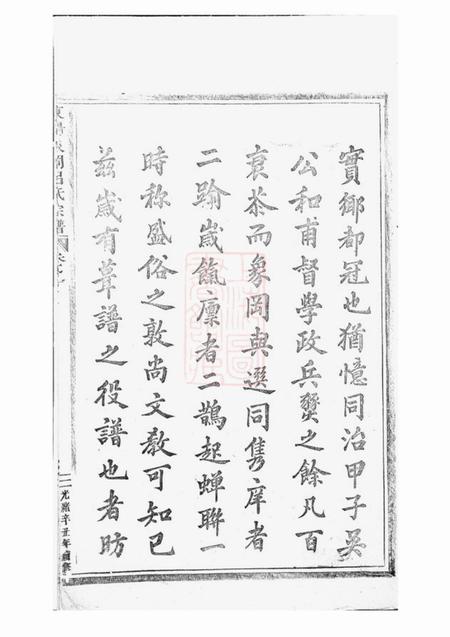 實鄉都冠也猶憶同治甲子吳
公和甫督學政兵燹之餘凡百
衰苶而象岡與選同雋庠者
二踰歲餼廩者二鵲起蟬聯一
時称盛俗之敦尚文教可知已
茲歲有葺譜之役譜也者昉
呂氏宗譜
光緒辛丑年續修